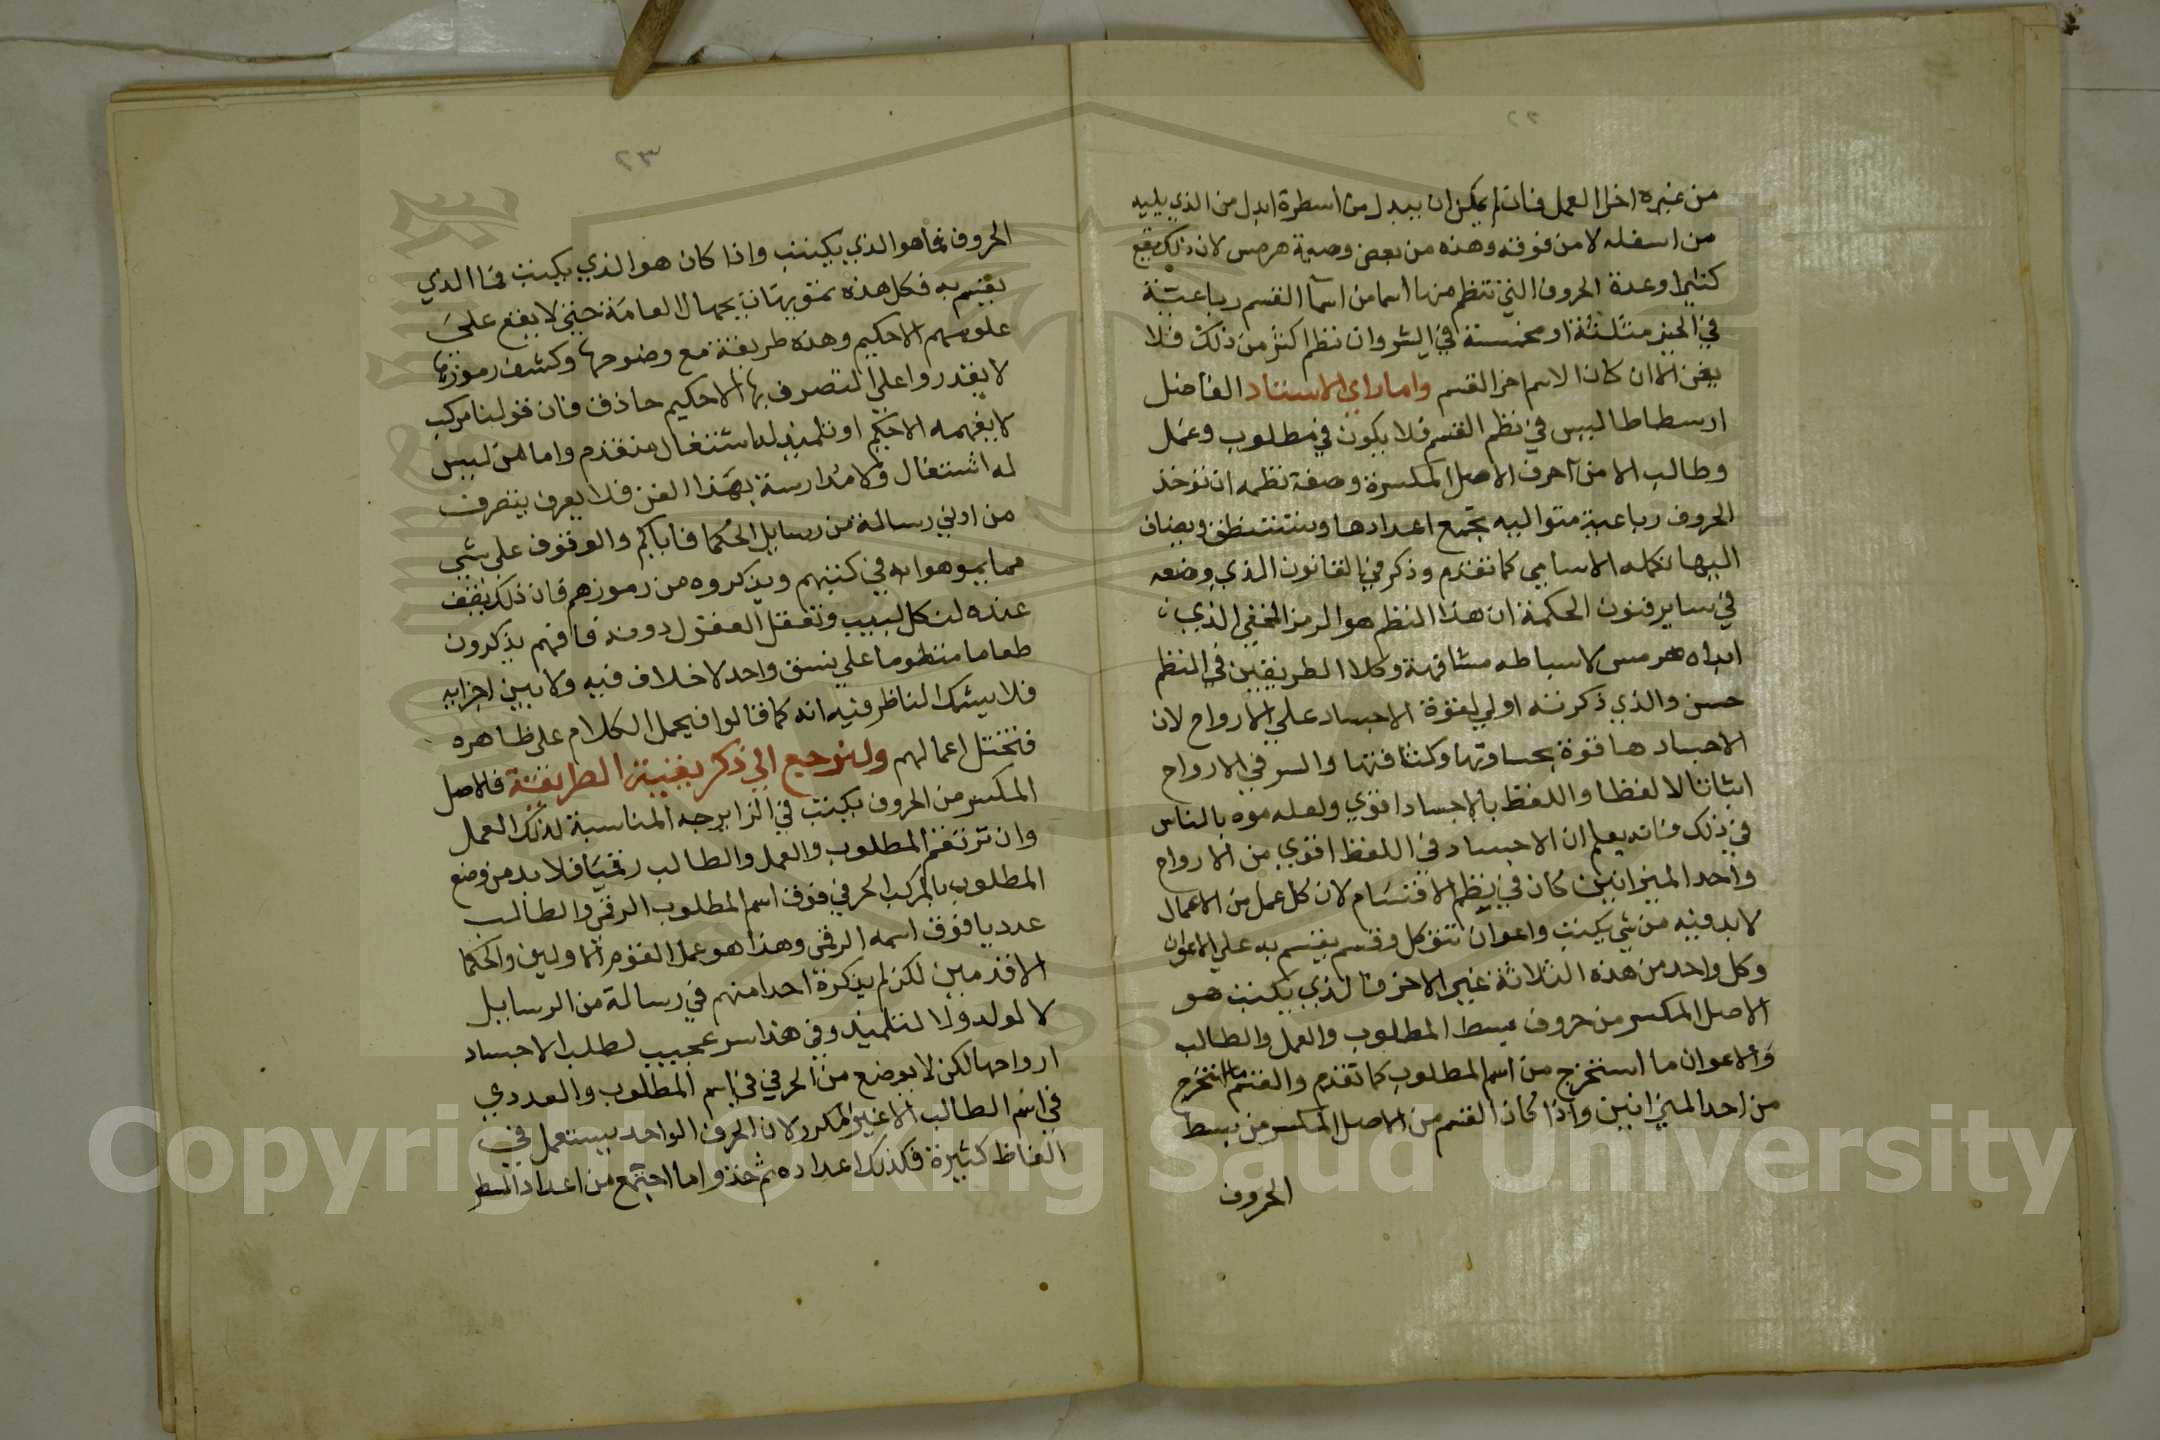 ٢٢
من غيره اخل العمل فان لم يمكن ان يبدل من اسطرة ابدل من الذي يليه
من اسفله لا من فوقه وهذه من بعض وصية هرمس لان ذلك يقع
كثيرا وعدة الحروف التي تنتظم منها اسما من اسما القسم رباعيّة
في الخير مثلثة او مخمسة في الشر وان نظم اكثر من ذلك فلا
يغن الا ان كان الاسم اخر القسم واما راي الاستاد الفاضل
ارسطاطاليس في نظم القسم فلا يكون في مطلوب وعمل
وطالب الا من احرف الاصل المكسرة وصفة نظمه ان توخذ
الحروف رباعية متواليه تجمع اعدادها وتستنطق ويضاف
اليها تكمله الاسامي كما تقدم وذكر في القانون الذي وضعه
في ساير فنون الحكمة ان هذا النظم هو الرمز الخفي الذي
ابداه هرمس لاسباطه مشافهة وكلا الطريقين في النظم
حسن والذي ذكرته اولي لقوة الاجساد علي الارواح لان
الاجساد ها قوة بجساوتها وكثافتها والسر في الارواح
اثباتا لا لفظا واللفظ بالاجساد اقوي ولعله موه بالناس
في ذلك فانه يعلم ان الاجساد في اللفظ اقوي من الارواح
واحد الميزانين كان في نظم الاقتسام لان كل عمل من الاعمال
لا بد فيه من شي يكتب واعوان تتوكل وقسم يقسم به علي الاعوان
وكل واحد من هذه الثلاثة غير الاخر فالذي يكتب هو
الاصل المكسر من حروف بسط المطلوب والعمل والطالب
والاعوان ما استخرج من اسم المطلوب كما تقدم والقسم ما استخرج
من احد الميزانين واذا كان القسم من الاصل المكسر من بسط
الحروف
٢٣
الحروف فما هو الذي يكتب واذا كان هو الذي يكتب فما الذي
يقسم به فكل هذه تمويهات بجهال العامة حتي لا يقع علي
علومهم الا حكيم وهذه طريقة مع وضوحها وكشف رموزها
لا يقدروا علي التصرف بها الا حكيم حاذق فان قولنا مركب
لا يفهمه الا حكيم او تلميذ له اشتغال متقدم واما من ليس
له اشتغال ولا مدارسة بهذا الفن فلا يعرف يتصرف
من ادني رسالة من رسايل الحكما فاياكم والوقوف على شي
مما يموهوا به في كتبهم ويذكروه من رموزهم فان ذلك يقف
عنده لب كل لبيب وتعقل العقول دونه فافهم يذكرون
طعاما منظوما علي نسق واحد لا خلاف فيه ولا بين اجزايه
فلا يشك الناظر فيه انه كما قالوا فيحمل الكلام على ظاهره
فتختل اعمالهم ولنرجع الي ذكر بقية الطريقة فالاصل
المكسر من الحروف يكتب في الزايرجه المناسبة لذلك العمل
وان ترتقم المطلوب والعمل والطالب رقميا فلا بد من وضع
المطلوب بالمركب الحرفي فوق اسم المطلوب الرقمي والطالب
عدديا فوق اسمه الرقمي وهذا هو عمل القوم الاولين والحكما
الاقدمين لكن لم يذكره احدا منهم في رسالة من الرسايل
لا لولد ولا لتلميذ وفي هذا سر عجيب لطلب الاجساد
ارواحها لكن لا يوضع من الحرفي في اسم المطلوب والعددي
في اسم الطالب الا غير المكرر لان الحرف الواحد يستعمل في
الفاظ كثيرة فكذلك اعداده ثم خذوا ما اجتمع من اعداد السطر
Copyright © King Saud University